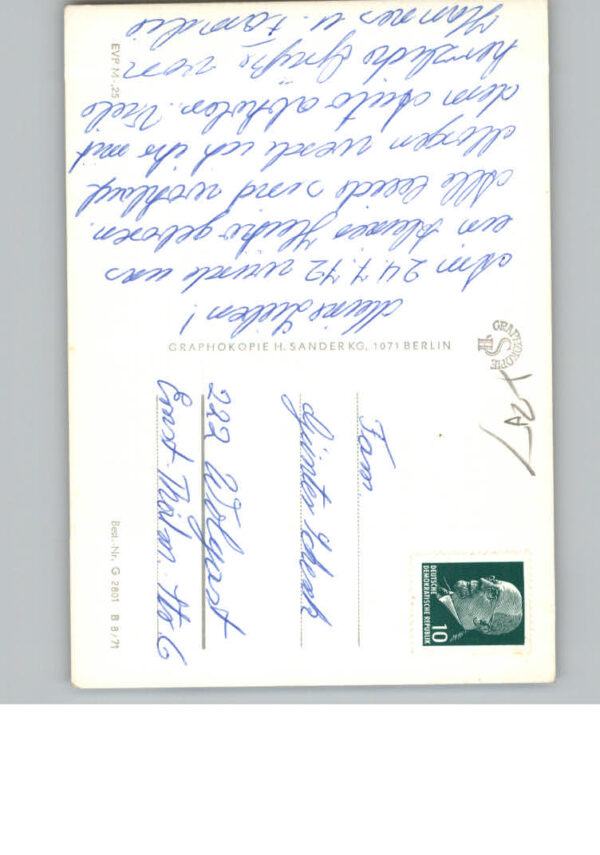 Meine Lieben!
Am 24.7.72 wurde uns
ein kleines Heiko geboren.
Alle beide sind wohlauf.
Morgen werde ich ihn mit
dem Auto abholen. Viele
herzliche Grüße von
Hannes u. Familie
EVP M -,25
GRAPHOKOPIE H. SANDER KG, 1071 BERLIN
GRAPHOKOPIE
HS
Best.-Nr. G 2801 B 8/71
Fam.
Günter
222 Wolgast
Ernst-Thälm.-Str 6
DEUTSCHE
DEMOKRATISCHE REPUBLIK
10